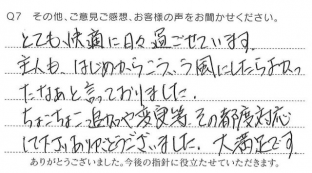 Q7 その他、ご意見ご感想、お客様の声をお聞かせください。
とても快適に日々過ごせています。
主人も、はじめからこういう風にしたらよかっ
たなぁと言っておりました。
ちょこちょこ追加や変更等、その都度対応
して下さりありがとうございました。大満足です
ありがとうございました。今後の指針に役立たせていただきます。